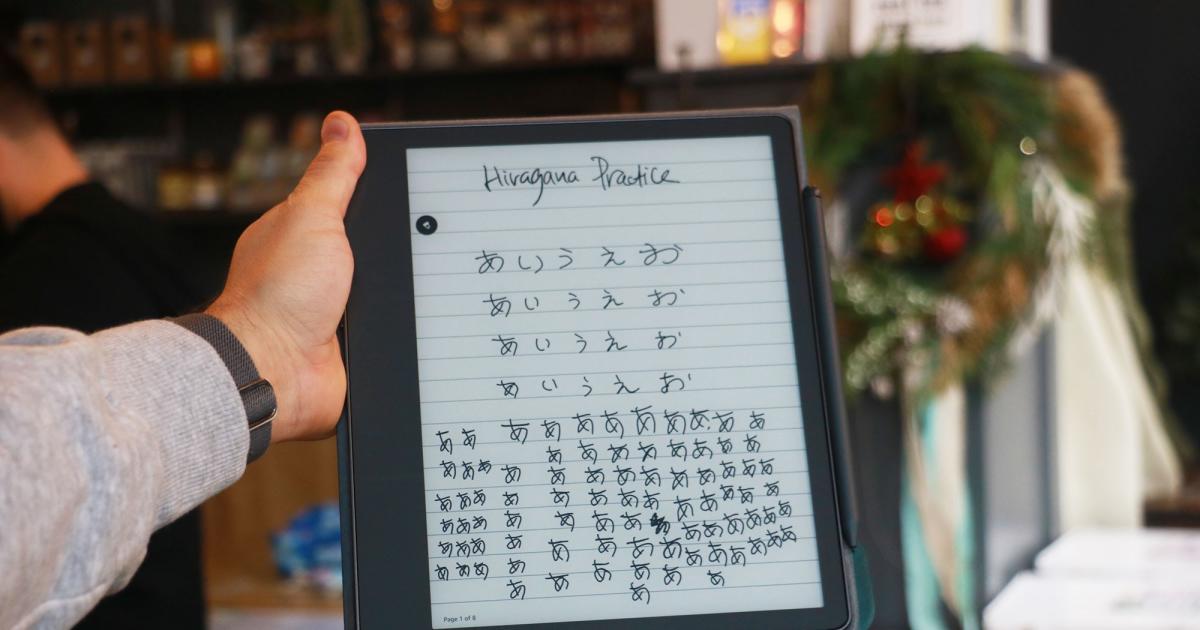 Hiragana Practice
あいうえお
あいうえお
あいうえお
あいうえお
ああ ああああああああああ
あああああああああああ
ああああああああああああ
あああああああああああ
ああああああああああああああ
あああああああああああああ
ああああああああああ
ああ
Page 1 of 8